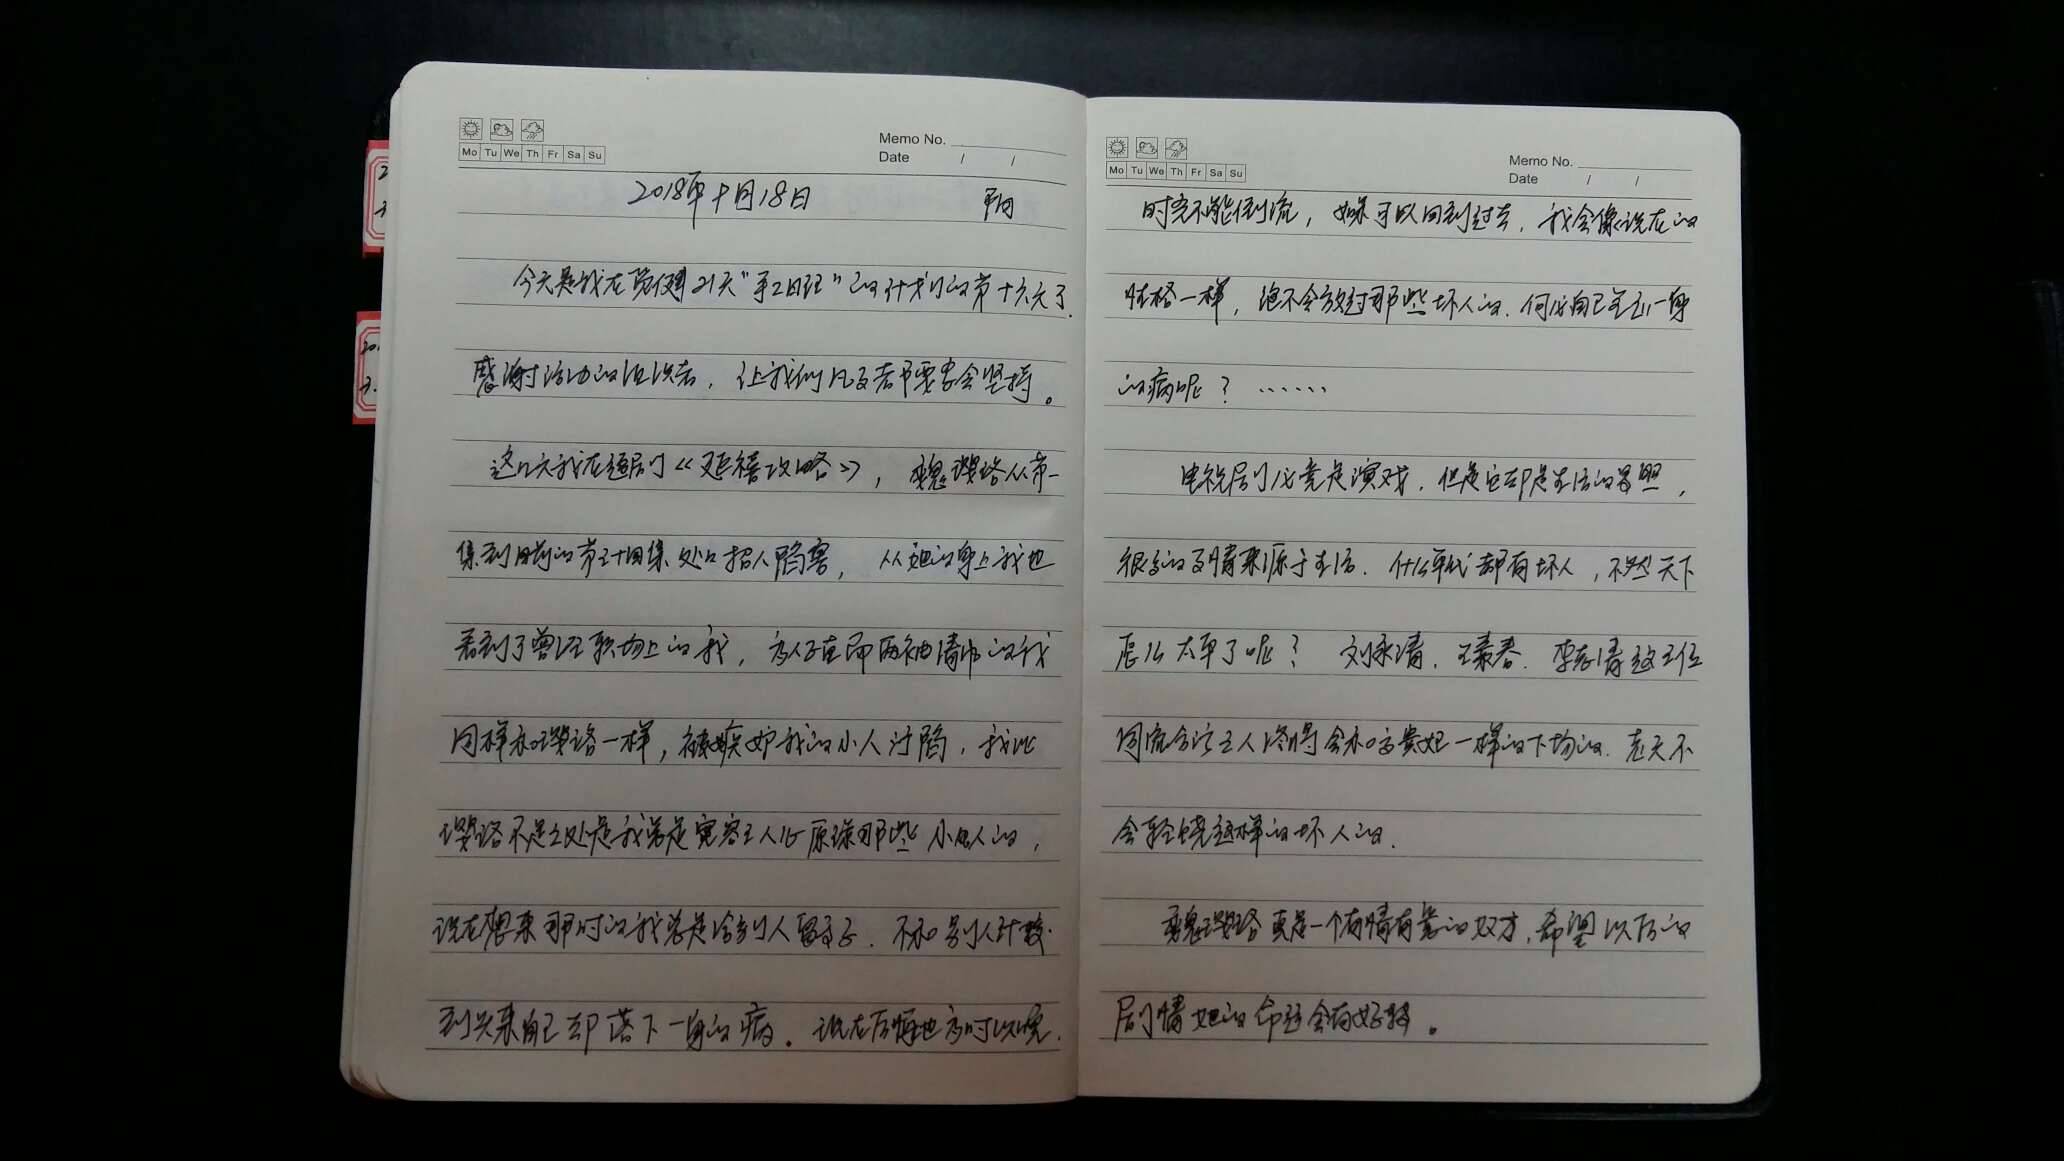 Mo Tu We Th Fr Sa Su
Memo No.
Date / /
2018年十月18日
今天是我在 21天"手工日记"的计划的第十六天了.
感谢活动的组织者，让我们凡事都要学会坚持。
这几天我在追剧《延禧攻略》，魏璎珞从第一
集到目前的第三十四集处处招人陷害，从她的身上我也
看到了曾经职场上的我，为人正直两袖清风的我
同样和璎珞一样，被嫉妒我的小人讨陷，我比
璎珞不足之处是我总是宽容主人公原谅那些小人的，
现在想来那时的我总是给别人留面子．不和别人计较.
到头来自己却落下一身的病。现在后悔也为时以晚.
Mo Tu We Th Fr Sa Su
Memo No.
Date / /
时光不能倒流，如果可以回到过去，我会像现在的
性格一样，绝不会放过那些坏人的．何必自己气出一身
的病呢？……
电视剧必竟是演戏．但是它却是生活的
很多的剧情来源于生活．什么年代都有坏人，不然天下
怎么太平了呢？ 刘永清．王素春．李志清这三位
同流合污之人终将会和高贵妃一样的下场的．老天不
会轻饶这样的坏人的．
魏璎珞真是一个有情有义的奴才．希望以后的
剧情她的命运会有好转。